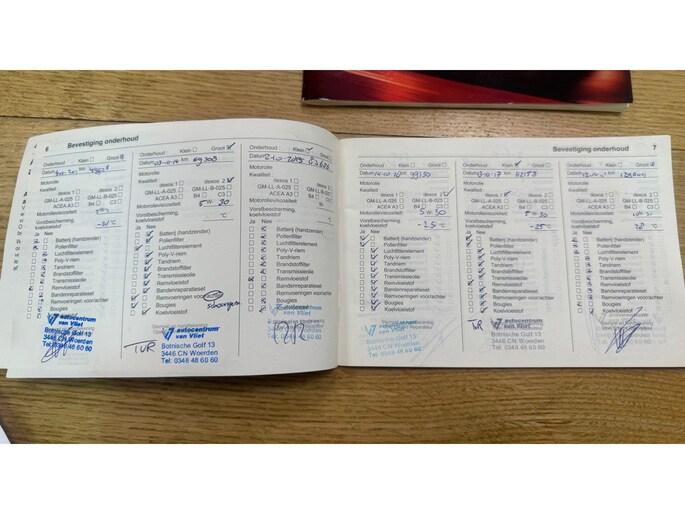 6 Bevestiging onderhoud
Onderhoud Klein Groot
Datum km
Motorolie
Kwaliteit
dexos 1 dexos 2
GM-LL-A-025 GM-LL-B-025
ACEA A3 B4 C3
Motorolieviscositeit
Vorstbescherming,
koelvloeistof
Ja Nee
Batterij (handzender)
Pollenfilter
Luchtfilterelement
Poly-V-riem
Tandriem
Brandstoffilter
Transmissieolie
Remvloeistof
Bandenreparatieset
Remvoeringen voor/achter
Bougies
Koelvloeistof
autocentrum
van Vliet
Botnische Golf 13
3446 CN Woerden
Tel: 0348 48 60 60
Onderhoud Klein Groot
Datum 03-11-14 km 69308
Motorolie
Kwaliteit
dexos 1 dexos 2
GM-LL-A-025 GM-LL-B-025
ACEA A3 B4 C3
Motorolieviscositeit 5W30
Vorstbescherming,
koelvloeistof °C
Ja Nee
Batterij (handzender)
Pollenfilter
Luchtfilterelement
Poly-V-riem
Tandriem
Brandstoffilter
Transmissieolie
Remvloeistof
Bandenreparatieset
Remvoeringen voor/achter
Bougies
Koelvloeistof
TUR
autocentrum
van Vliet
Botnische Golf 13
3446 CN Woerden
Tel: 0348 48 60 60
Onderhoud Klein Groot
Datum
Motorolie
Kwaliteit
dexos 1 dexos 2
GM-LL-A-025 GM-LL-B-025
ACEA A3 B4 C3
Motorolieviscositeit
Vorstbescherming,
koelvloeistof
Ja Nee
Batterij (handzender)
Pollenfilter
Luchtfilterelement
Poly-V-riem
Tandriem
Brandstoffilter
Transmissieolie
Remvloeistof
Bandenreparatieset
Remvoeringen voor/achter
Bougies
Koelvloeistof
Botnische Golf 13
3446 CN Woerden
Tel: 0348 48 60 60
Bevestiging onderhoud 7
Onderhoud Klein Groot
Datum km 99350
Motorolie
Kwaliteit
dexos 1 dexos 2
GM-LL-A-025 GM-LL-B-025
ACEA A3 B4 C3
Motorolieviscositeit 5W30
Vorstbescherming,
koelvloeistof -25 °C
Ja Nee
Batterij (handzender)
Pollenfilter
Luchtfilterelement
Poly-V-riem
Tandriem
Brandstoffilter
Transmissieolie
Remvloeistof
Bandenreparatieset
Remvoeringen voor/achter
Bougies
Koelvloeistof
Botnische Golf 13
3446 CN Woerden
Tel: 0348 48 60 60
Onderhoud Klein Groot
Datum km
Motorolie
Kwaliteit
dexos 1 dexos 2
GM-LL-A-025 GM-LL-B-025
ACEA A3 B4 C3
Motorolieviscositeit 5W30
Vorstbescherming,
koelvloeistof -25 °C
Ja Nee
Batterij (handzender)
Pollenfilter
Luchtfilterelement
Poly-V-riem
Tandriem
Brandstoffilter
Transmissieolie
Remvloeistof
Bandenreparatieset
Remvoeringen voor/achter
Bougies
Koelvloeistof
TUR
autocentrum
van Vliet
Botnische Golf 13
3446 CN Woerden
Tel: 0348 48 60 60
Onderhoud Klein Groot
Datum km
Motorolie
Kwaliteit
dexos 1 dexos 2
GM-LL-A-025 GM-LL-B-025
ACEA A3 B4 C3
Motorolieviscositeit
Vorstbescherming,
koelvloeistof
Ja Nee
Batterij (handzender)
Pollenfilter
Luchtfilterelement
Poly-V-riem
Tandriem
Brandstoffilter
Transmissieolie
Remvloeistof
Bandenreparatieset
Remvoeringen voor/achter
Bougies
Koelvloeistof
Botnische Golf 13
3446 CN Woerden
Tel: 0348 48 60 60